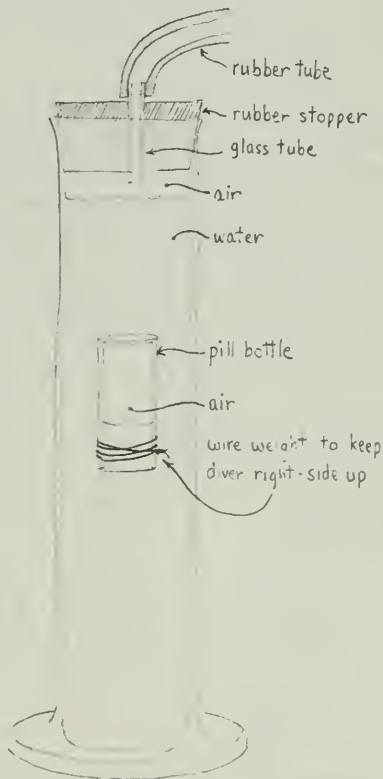 rubber tube
rubber stopper
glass tube
air
water
pill bottle
air
wire weight to keep
diver right-side up